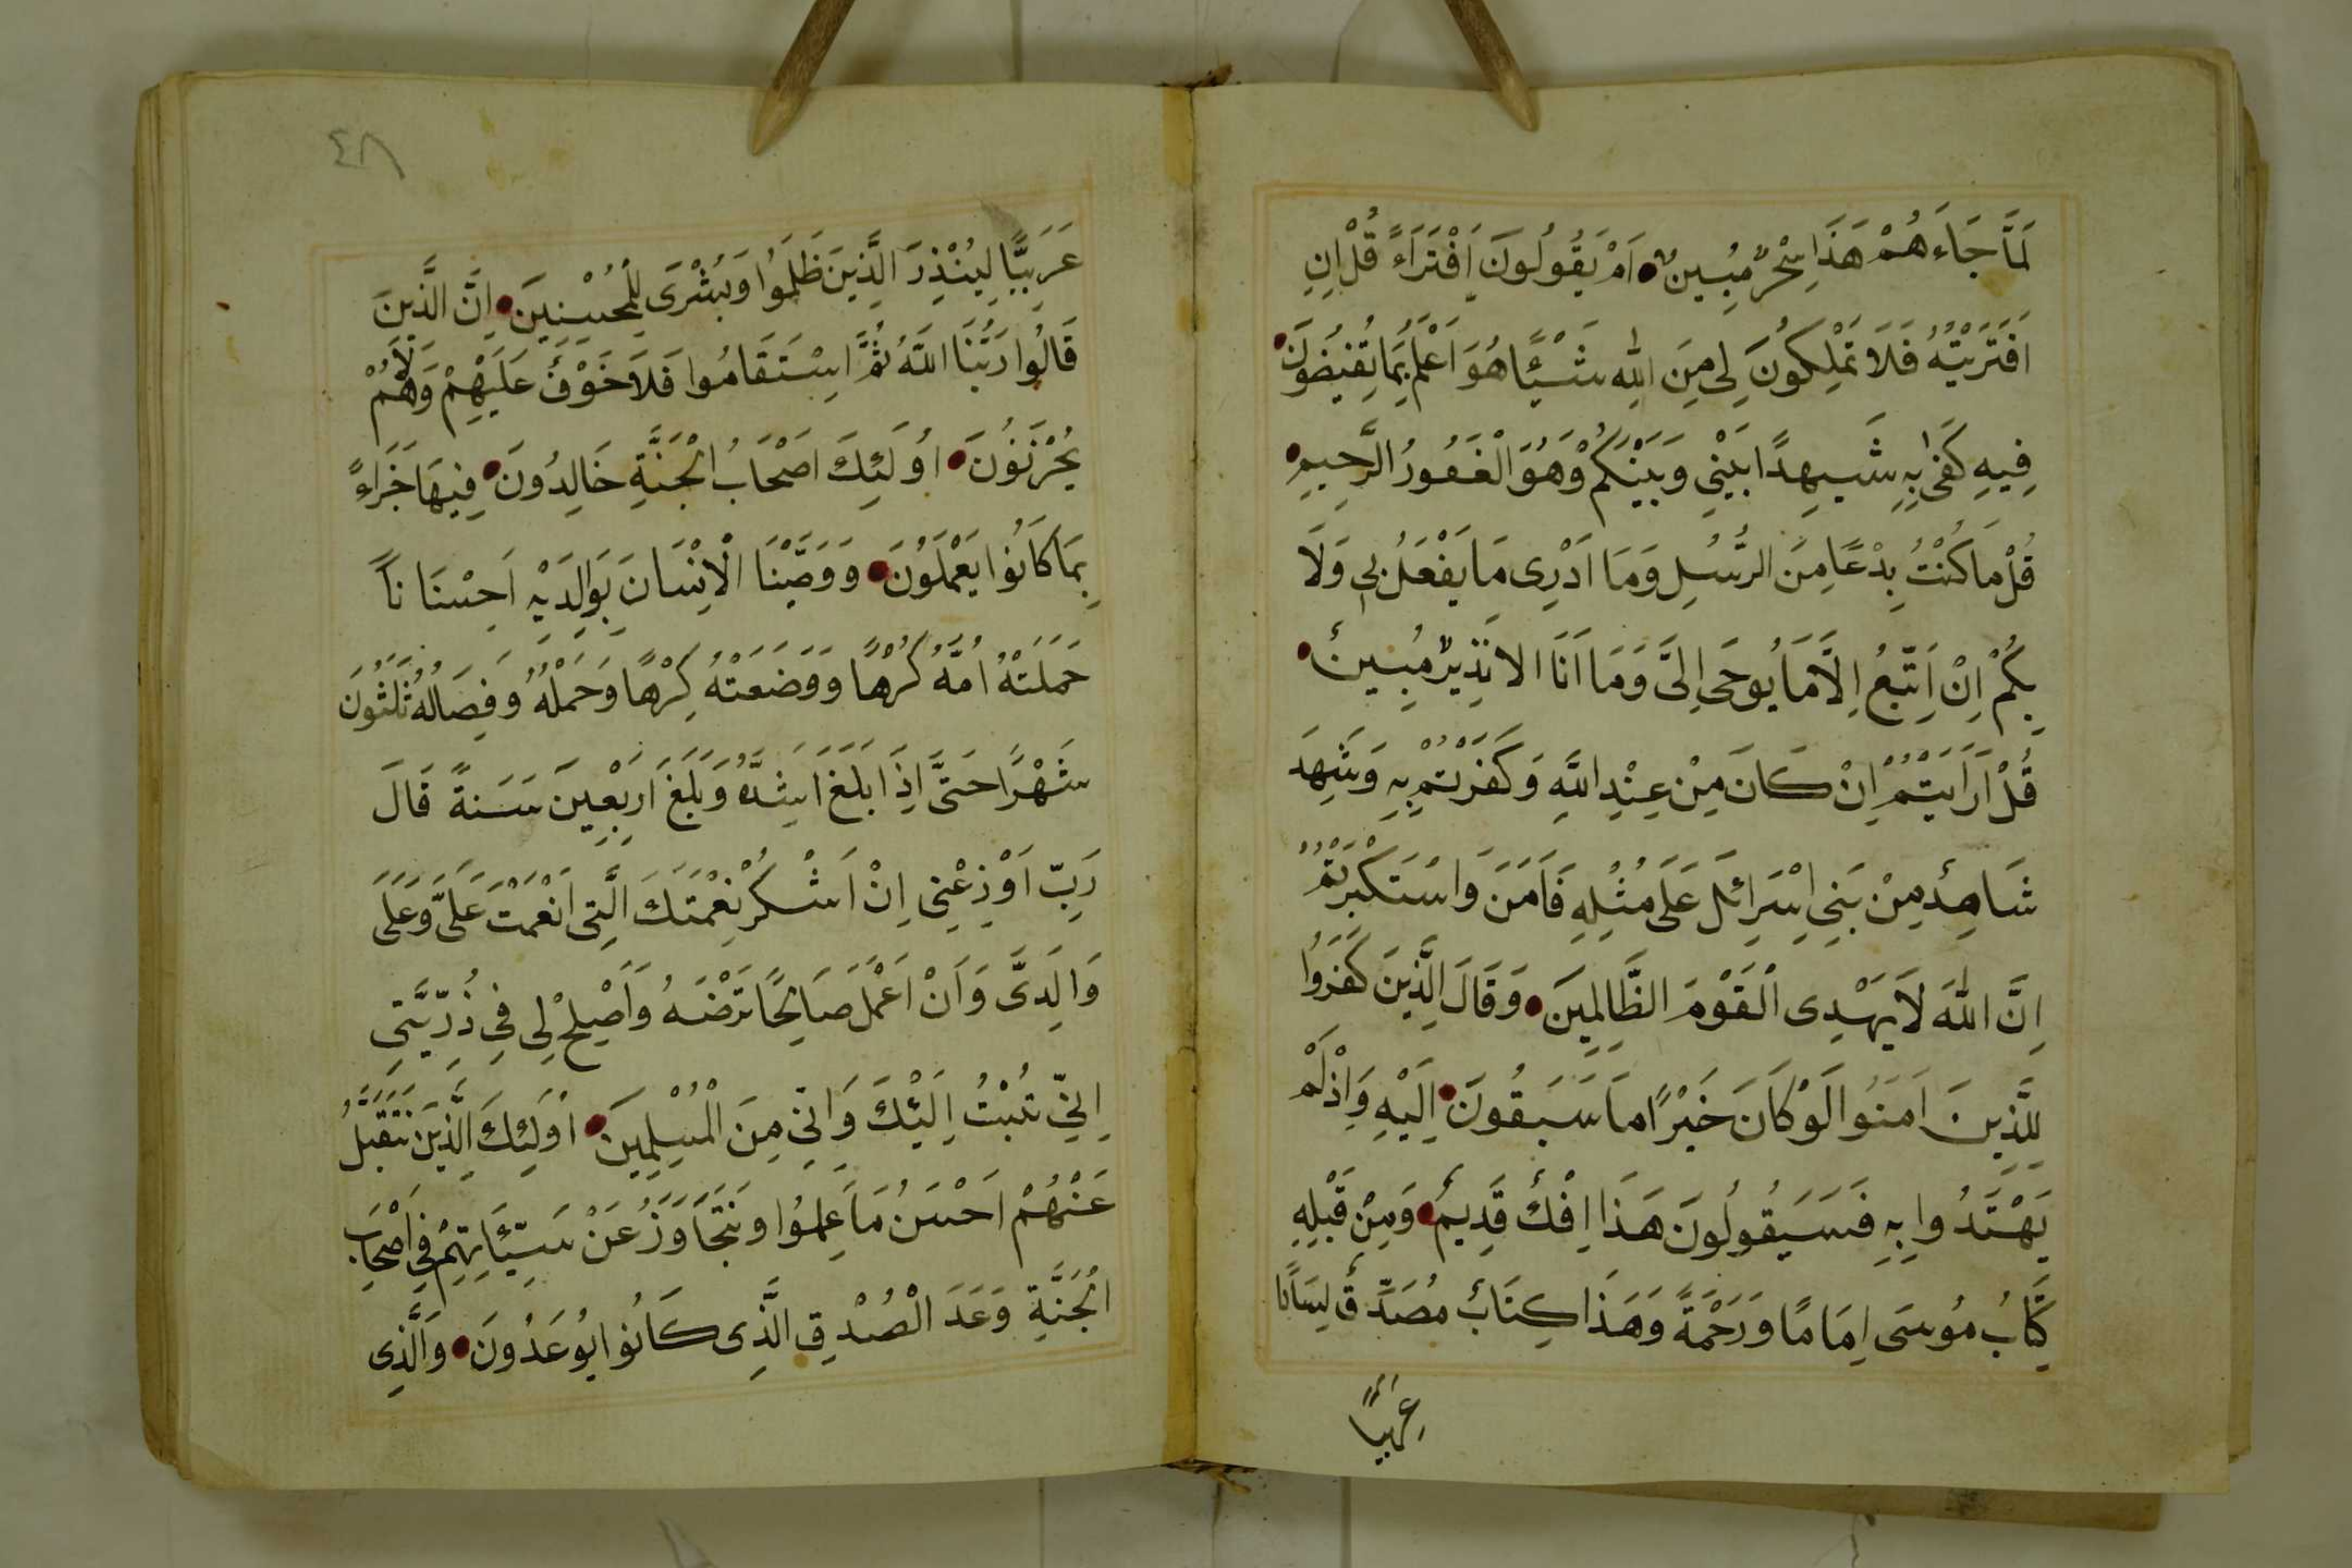 لَمَّا جَاءَهُمْ هَذَا سِحْرٌ مُبِينٌ اَمْ يَقُولُونَ اَفْتَرَاءً قُلْ اِنِ
افَتَرَيْتُهُ فَلَا تَمْلِكُونَ لِى مِنَ اللهِ شَيْئًا هُوَ اَعْلَمُ بِمَا تُفِيضُونَ
فِيهِ كَفَى بِهِ شَهِيدًا بَيْنِي وَبَيْنَكُمْ وَهُوَ الْغَفُورُ الرَّحِيمِ
قُلْ مَا كُنْتُ بِدْعًا مِنَ الرُّسُلِ وَمَا اَدْرِى مَا يَفْعَلُ بِي وَلَا
بِكُمْ اِنْ اَتَّبِعُ اِلَّا مَا يُوحَى اِلَىَّ وَمَا اَنَا الا نَذِيرٌ مُبِينٌ
قُلْ اَرَاَيْتُمْ اِنْ كَانَ مِنْ عِنْدِ اللَّهِ وَكَفَرْتُمْ بِهِ وَشَهِدَ
شَاهِدٌ مِنْ بَنِي اِسْرَائلَ عَلَى مثْلِهِ فَاَمَنَ وَاسْتَكْبَرْتُمْ
اِنَّ اللهَ لَا يَهْدِى الْقَوْمَ الظَّالِمِينَ وَقَالَ الَّذِينَ كَفَرُوا
لِلَّذِينَ اَمَنُوا لَوْ كَانَ خَيْرًا مَا سَبَقُونَ اِلَيْهِ وَاِذْ لَمْ
يَهْتَدُوا بِهِ فَسَيَقُولُونَ هَذَا اِفْكٌ قَدِيمٌ وَمِنْ قَبْلِهِ
كِتَابُ مُوسَى اِمَامًا وَرَحْمَةً وَهَذَا كِتَابٌ مُصَدِّقٌ لِسَانًا
عربيًا
٤٨
عَرَبِيًّا لِيُنْذِرَ الَّذِينَ ظَلَمُوا وَبُشْرَى لِلْمُحْسِنِينَ اِنَّ الَّذِينَ
قَالُوا رَبُّنَا اللَّهُ ثُمَّ اسْتَقَامُوا فَلَا خَوْفٌ عَلَيْهِمْ وَلَا هُمْ
يُحْزَنُونَ اُولَئِكَ اَصْحَابُ الْجَنَّةِ خَالِدُونَ فِيهَا جَزَاءً
بِمَا كَانُوا يَعْمَلُونَ وَوَصَّيْنَا الْاِنْسَانَ بِوَالِدَيْهِ اِحْسَنَا نًا
حَمَلَتْهُ اُمُّهُ كُرْهًا وَوَضَعَتْهُ كِرْهًا وَحَمْلُهُ وَفِصَالُهُ ثَلَثُونَ
شَهْرًا حَتَّى اِذَا بَلَغَ اَشُدَّهُ وَبَلَغَ اَرْبَعِينَ سَنَةً قَالَ
رَبِّ اَوْزِعْنِي اِنْ اَشْكُرْ نِعْمَتَكَ الَّتِى اَنْعَمْتَ عَلَىَّ وَعَلَى
وَالِدَىَّ وَاَنْ اَعْمَلَ صَالِحًا تَرْضَهُ وَاَصْلِحْ لِى فِي ذُرِّيَّتِي
اِنِّي تُبْتُ اِلَيْكَ وَاِنِّي مِنَ الْمُسْلِمِينَ اُولَئِكَ الَّذِينَ نَتَقَبَّلُ
عَنْهُمْ اَحْسَنُ مَا عَمِلُوا وَنَتَجَاوَزُ عَنْ سَيِّئَاتِهِمْ فِي اَصْحَابِ
الْجَنَّةِ وَعَدَ الْصُدْقِ الَّذِى كَانُوا يُوعَدُونَ وَالَّذِى